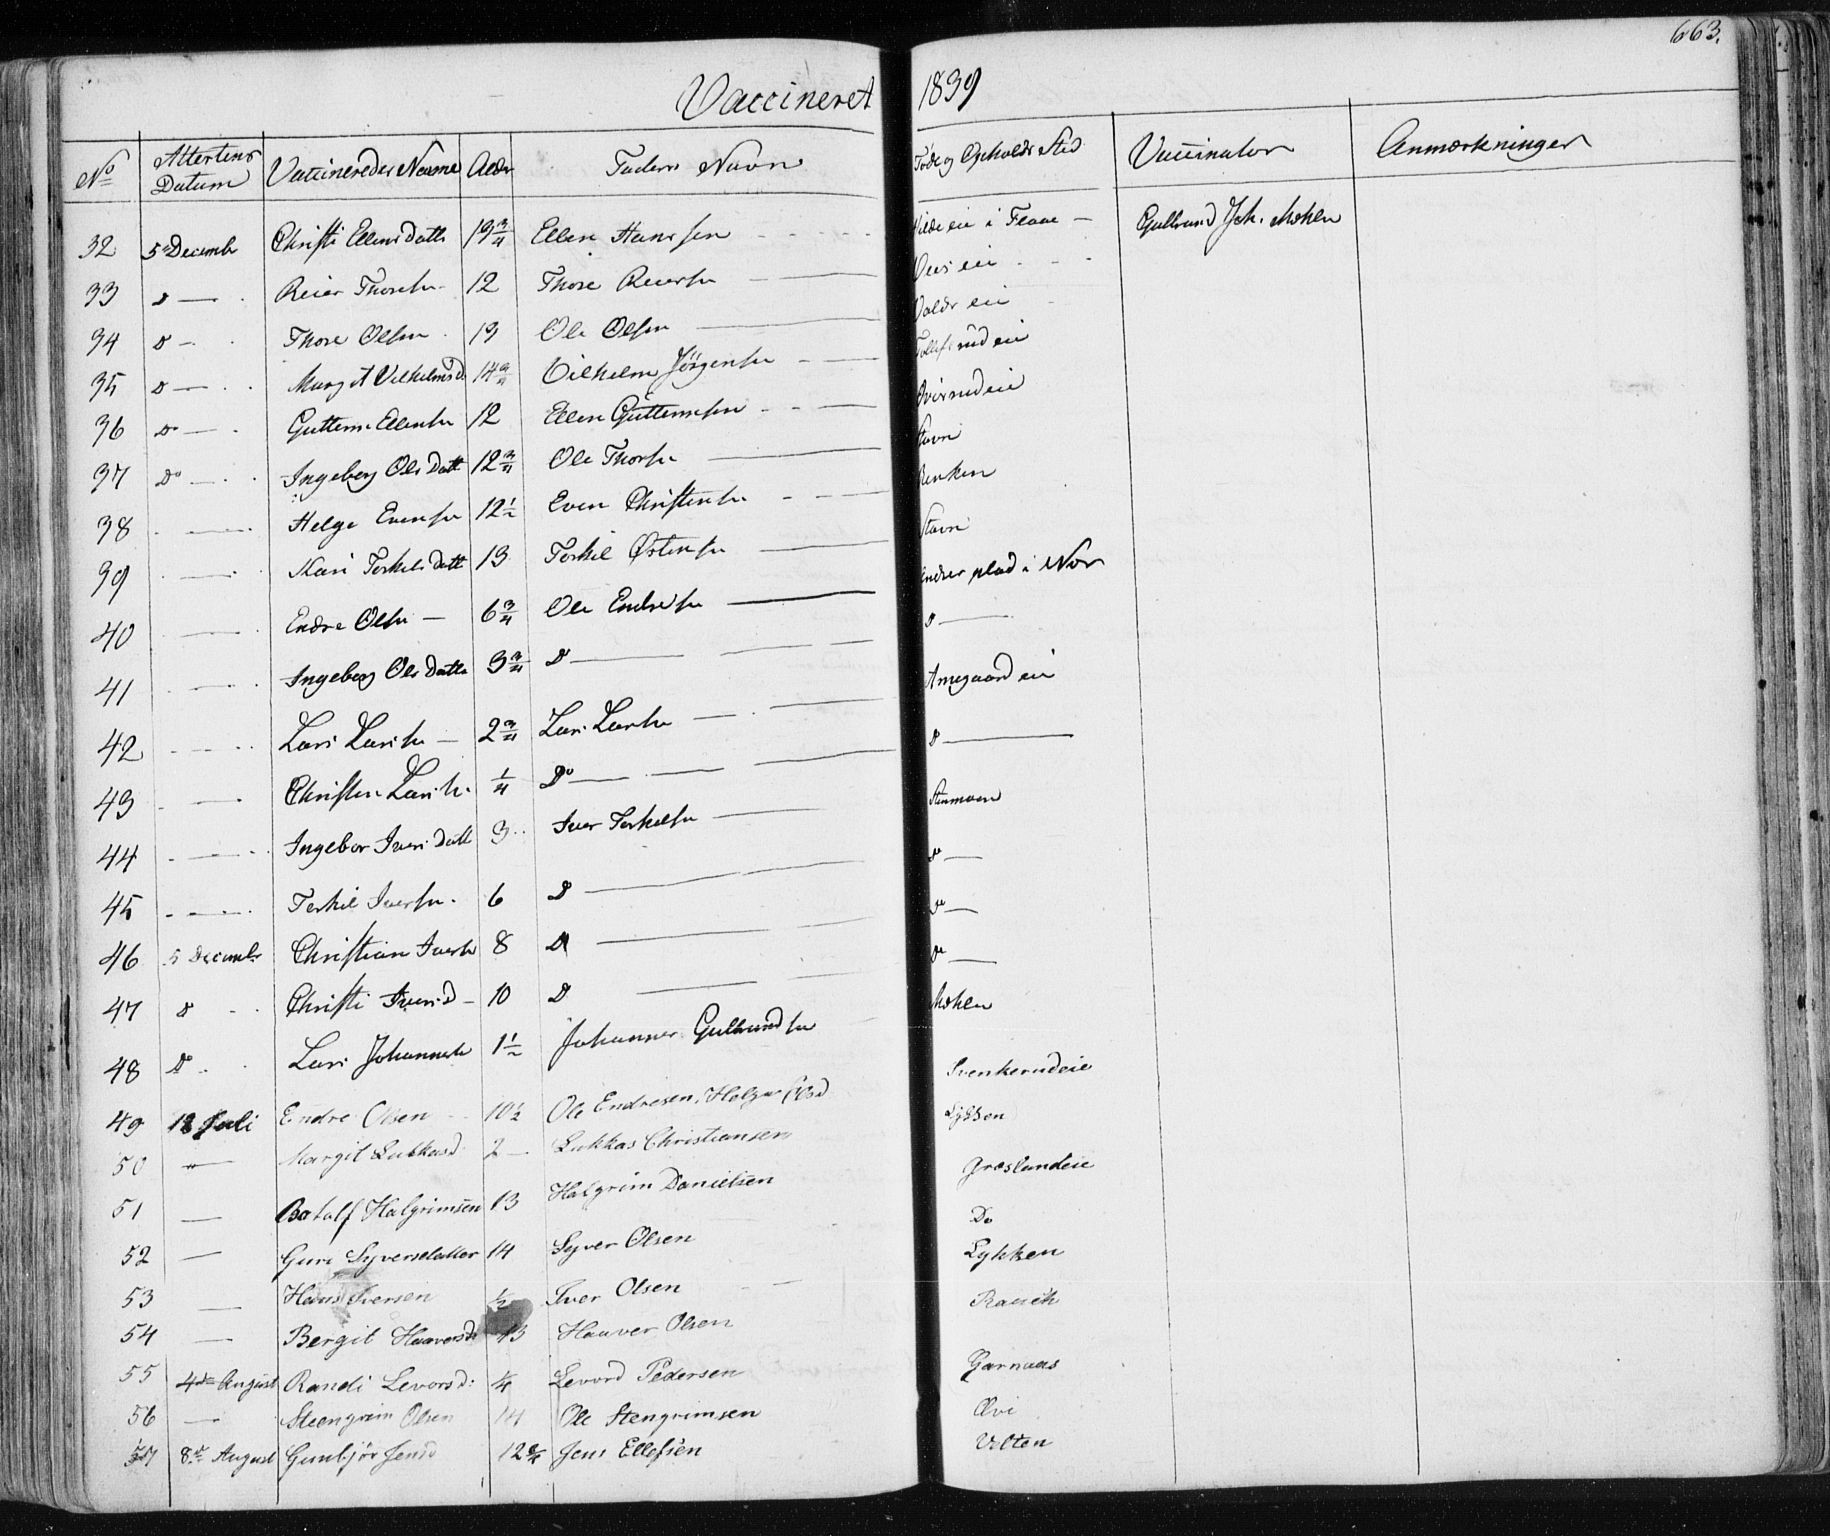 663.
Vaccineret 1839
No Attestens Datum Vaccineredes Navne Alder Faders Navn Føde og Opholds Sted Vaccinator Anmærkninger
32 5 Decembr Christi Ellens Datter 13 3/4 Ellen Hansen eie i Flaae Gulbrand Joh. Mohlen
33 D Reier Thoresen 12 Thore Reiersen eie
34 D Thore Olsen 13 Ole Olsen eie
35 D Margit Vilhelmsd 14 3/4 Vilhelm Jörgensen rud eie
36 Do Guttorm Ellensen 12 Ellen Guttormsen rud eie
37 Do Ingeborg Ols Datt 12 3/4 Ole Thorsen Stavn
38 Helge Evensen 12 1/2 Even Christensen
39 Kari Torkels Datt 13 Torkil Østensen Stavn
40 Endre Olsen 6 3/4 Ole Endresen plads i Nor
41 Ingeborg Ols Datter 3 3/4 D D
42 Lars Larsen 2 3/4 Lars Larsen Arnegaard eie
43 Christen Larsen 1/4 Do D
44 Ingebor Ivers Datt 3 Iver Torkelsen Steenmoen
45 Torkil Iversen 6 D Do
46 5 Decembr Christian Iversen 8 D Do
47 D Christi Iversd 10 D Do
48 D Lars Johannesen 1 1/2 Johannes Gulbrandsen Mohlen
49 18 Juli Endre Olsen 10 1/2 Ole Endresen, Helga Olsd Svenkerudeie
50 " Margit Lukkasd 2 Lukkas Christiansen Lykken
51 Botolf Halgrimsen 13 Halgrim Danielsen Græslandeie
52 Guri Syversdatter 14 Syver Olsen Do
53 Hans Iversen 1/2 Iver Olsen Lykken
54 Bergit Haavorsd 13 Haaver Olsen
55 4de August Randi Levorsd: 1/4 Levord Pedersen Garnaas
56 Steengrim Olsen 14 Ole Stengrimsen Ølvi
57 8de August Gunbjør Jensd 12 3/4 Jens Ellefsen Velten